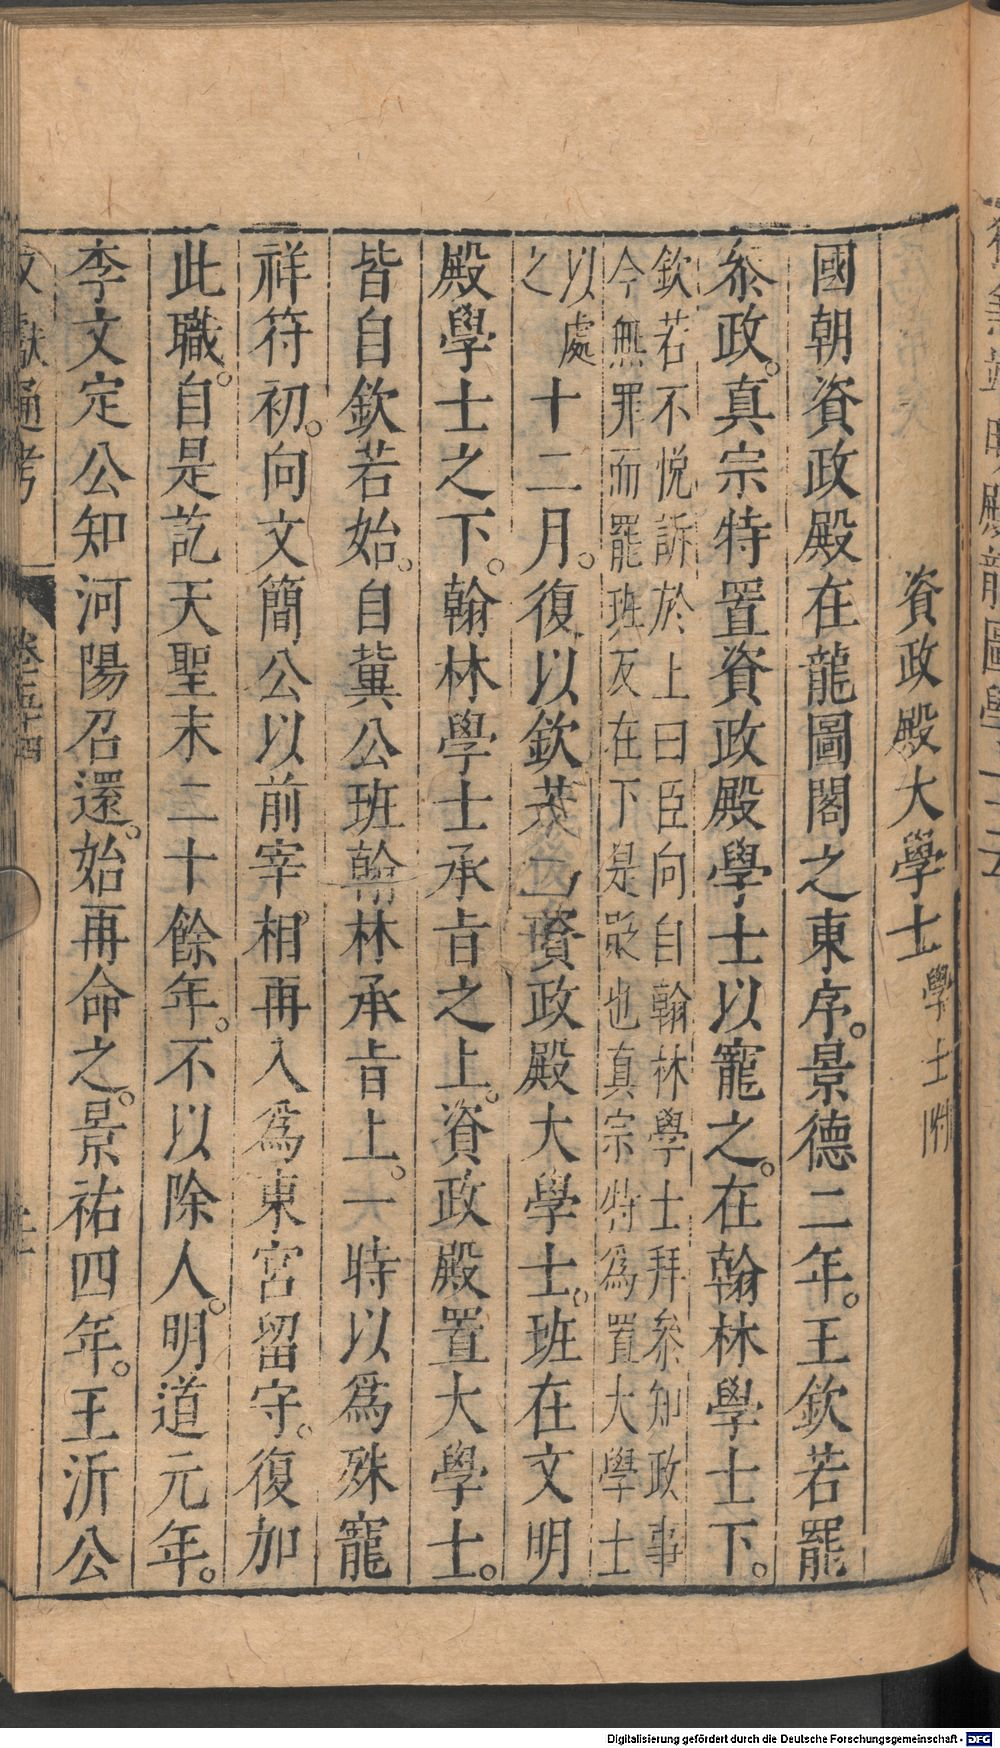 資政殿大學士學士附
國朝資政殿在龍圖閣之東序。景德二年。王欽若罷
叅政。真宗特置資政殿學士以寵之。在翰林學士下。
欽若不悅訴於上曰臣向自翰林學士拜叅知政事
今無罪而罷班反在下是貶也真宗特爲置大學士
以處
之
十二月。復以欽若爲資政殿大學士。班在文明
殿學士之下。翰林學士承旨之上。資政殿置大學士。
皆自欽若始。自冀公班翰林承旨上。一時以爲殊寵
祥符初。向文簡公以前宰相再入爲東宮留守。復加
此職。自是訖天聖末二十餘年。不以除人。明道元年。
李文定公知河陽召還。始再命之。景祐四年。王沂公
文獻通考
卷五十四
Digitalisierung gefördert durch die Deutsche Forschungsgemeinschaft - DFG